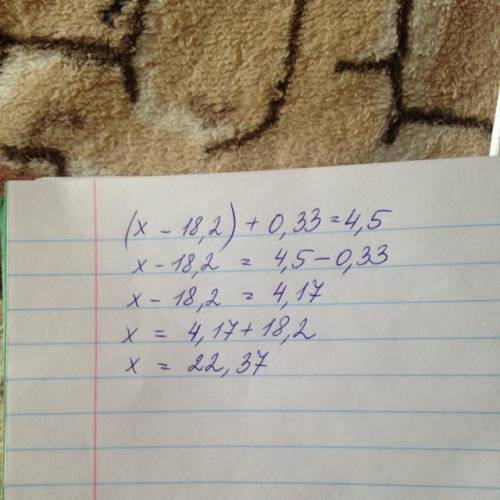 (x - 18,2) + 0,33 = 4,5
x - 18,2 = 4,5 - 0,33
x - 18,2 = 4,17
x = 4,17 + 18,2
x = 22,37